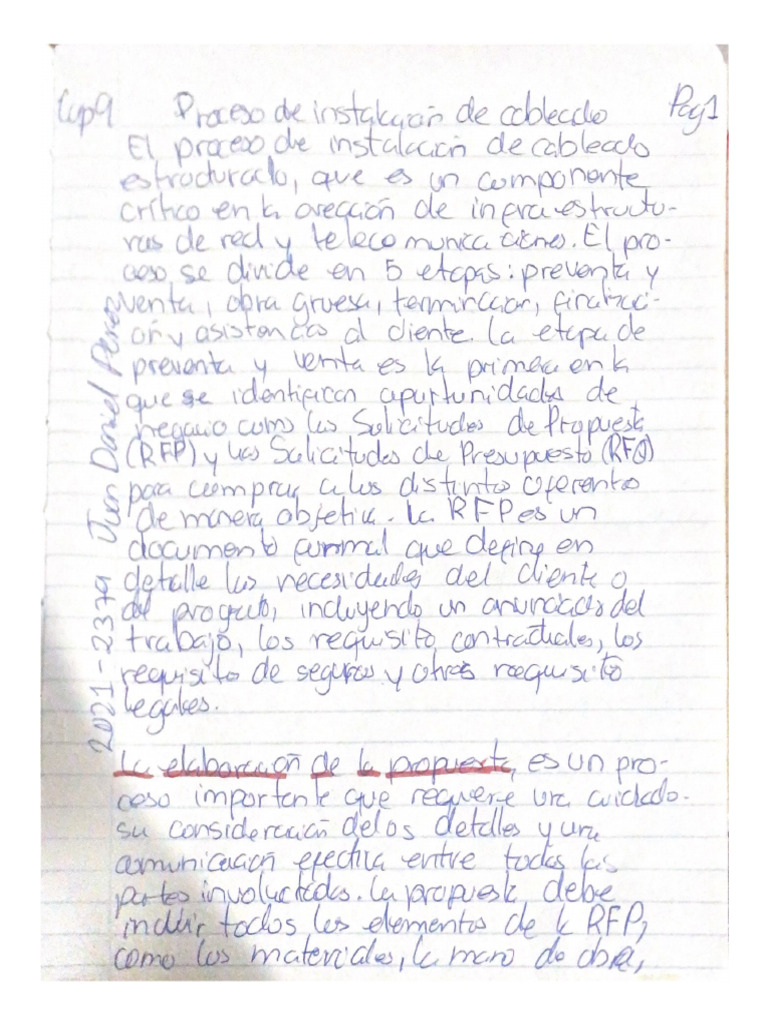 Cap9 Proceso de instalación de cableado Pag1
El proceso de instalación de cableado
estructurado, que es un componente
crítico en la creación de infraestructu-
ras de red y telecomunicaciones. El pro-
ceso se divide en 5 etapas: preventa y
venta, obra gruesa, terminacion, finalizaci-
ón y asistencias al cliente. La etapa de
preventa y venta es la primera en la
que se identifican oportunidades de
negocio como las Solicitudes de Propuesta
(RFP) y las Solicitudes de Presupuesto (RFQ)
para comprar a los distintos oferentes
de manera objetiva. La RFP es un
documento formal que define en
detalle las necesidades del cliente o
del proyecto, incluyendo un anunciado del
trabajo, los requisito contractuales, los
requisito de seguros y otros requisito
legales.
La elaboración de la propuesta, es un pro-
ceso importante que requiere una cuidado-
sa consideración de los detalles y una
comunicación efectiva entre todas las
partes involuctadas. La propuesta debe
incluir todos los elementos de la RFP,
como los materiales, la mano de obra,
2021-2379 Juan Daniel Perez